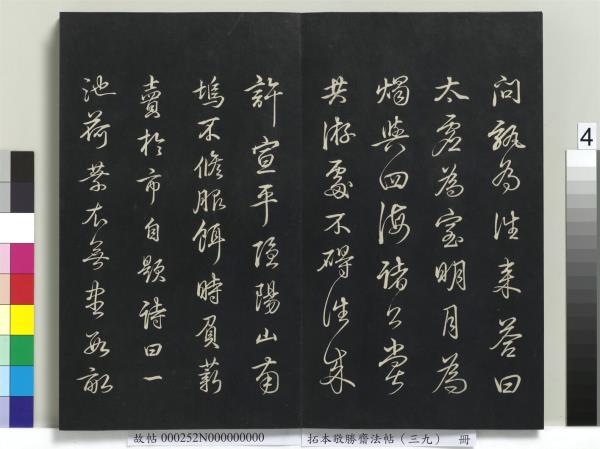 問孰為往来荅曰
太虛為室明月為
燭與四海諸公嘗
共游處不碍往来
許宣平隐陽山南
塢不修服餌時負薪
賣於市自題詩曰一
池荷葉衣無盡數畝
4
故帖 000252N000000000
拓本敬勝齋法帖(三九) 冊